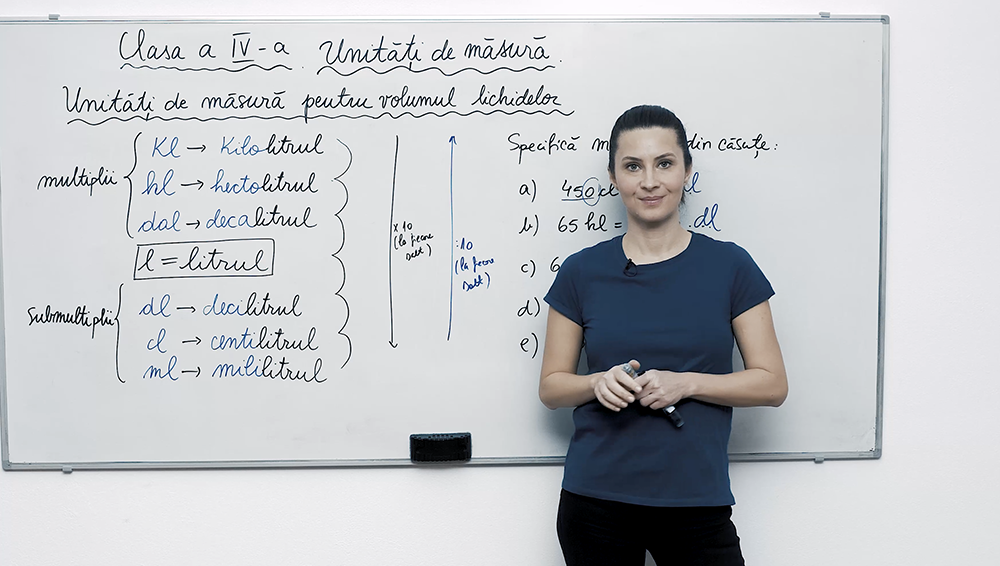 Clasa a IV-a. Unități de măsură.
Unități de măsură pentru volumul lichidelor
multiplii
kl → kilolitrul
hl → hectolitrul
dal → decalitrul
l = litrul
submultiplii
dl → decilitrul
cl → centilitrul
ml → mililitrul
x 10
(la fiecare
salt)
: 10
(la fiecare
salt)
Specifică din căsuțe:
a) 450
b) 65 hl = ..dl
c) 6
d)
e)